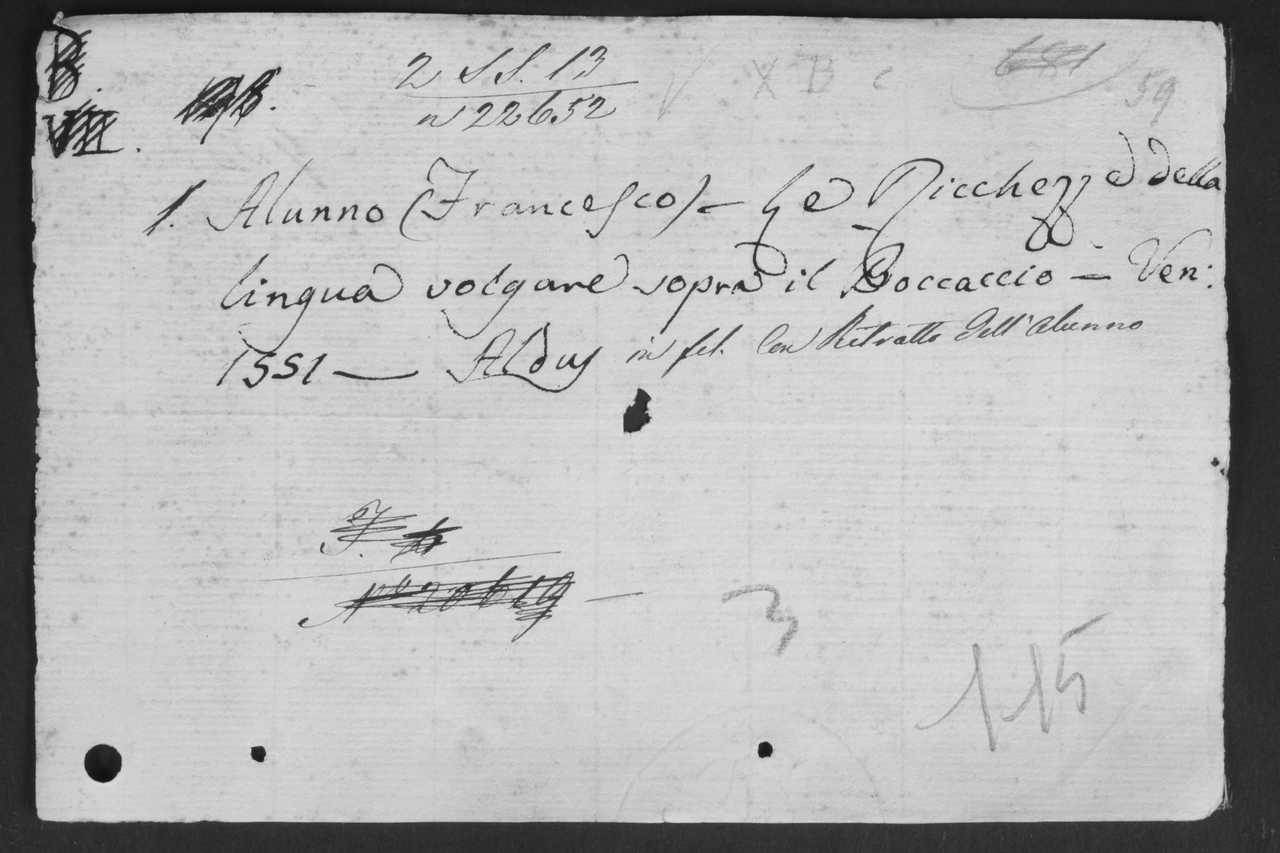 B.
VIII.
2 SS. 13
n 22652
V X B c
59
1. Alunno (Francesco) – Le Ricchezze della
lingua volgare sopra il Boccaccio – Ven:
1551 — Aldus in fol. Con Ritratto dell'Alunno
N° 20619 –
3
115